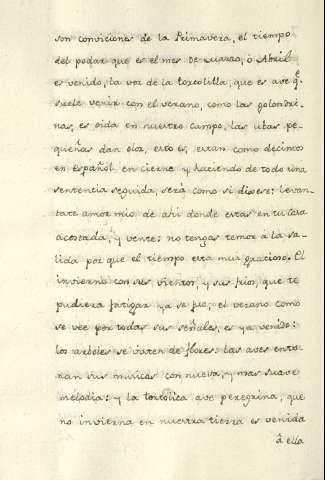 son conviciones de la Primavera, el tiempo
del podar que es el mes De Marzo, ó Abril
es venido, la voz de la tortolilla, que es ave q.ͤ
suele venir con el verano, como las golondri
nas, es oida en nuestro campo, las ubas pe
queñas dan olor, esto es, estan como decimos
en español en cierne y haciendo de todo una
sentencia seguida, será como si dixese: levan
tate amor mio de ahi donde estas en tu casa
acostada, y vente: no tengas temor á la sa
lida por que el tiempo está muy gracioso. El
invierno con sus vientos, y sus frios, que te
pudiera fatigar ya se fue, el verano como
se vee por todas sus señales, es ya venido:
los arboles se visten de flores: las aves ento
nan sus musicas con nueva, y mas suave
melodia: y la tortolica ave peregrina, que
no invierna en nuestra tierra es venida
á ella